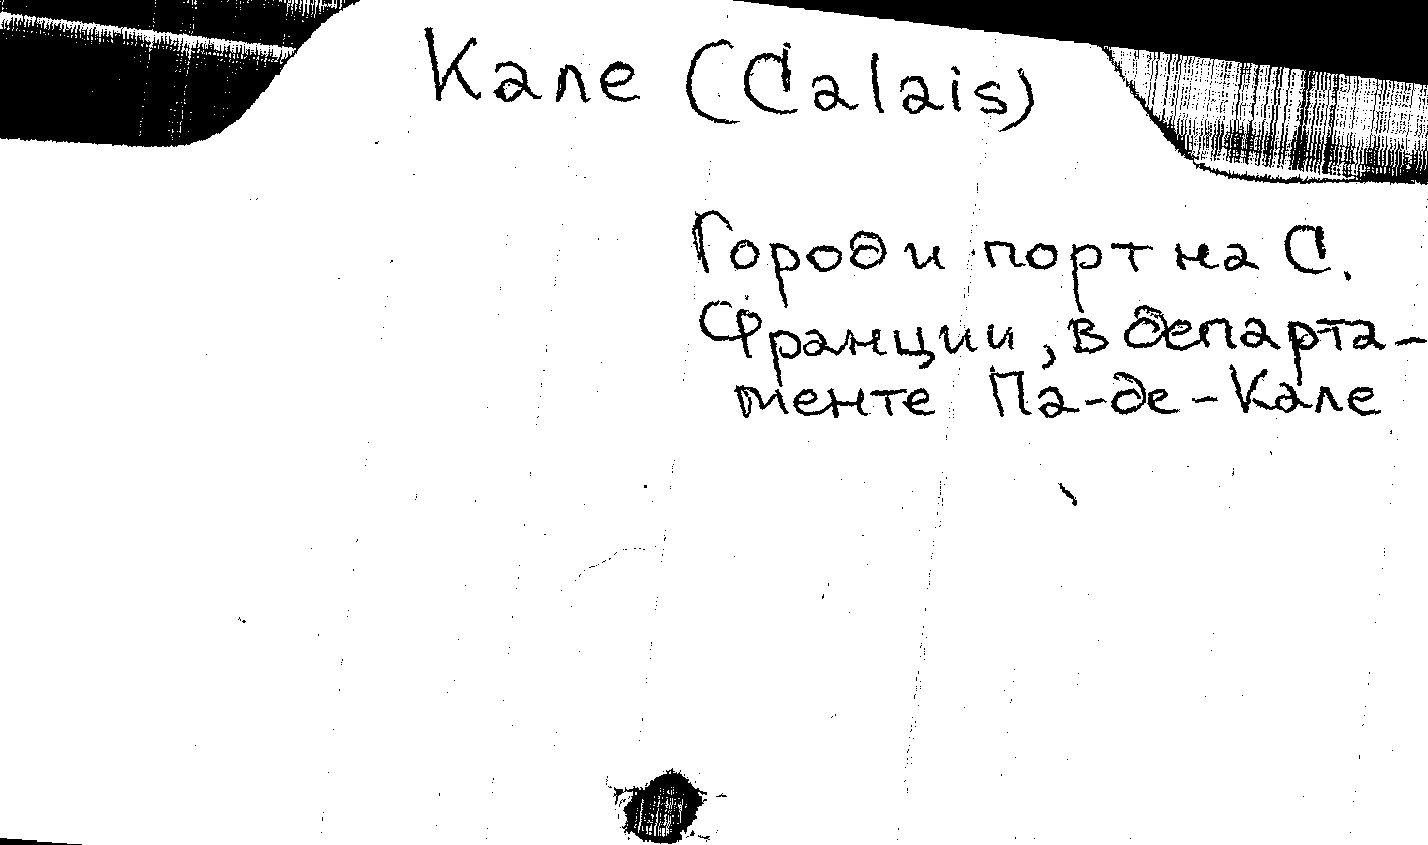 Кале (Calais)
Город и порт на С.
Франции, в департа-
менте Па-де-Кале